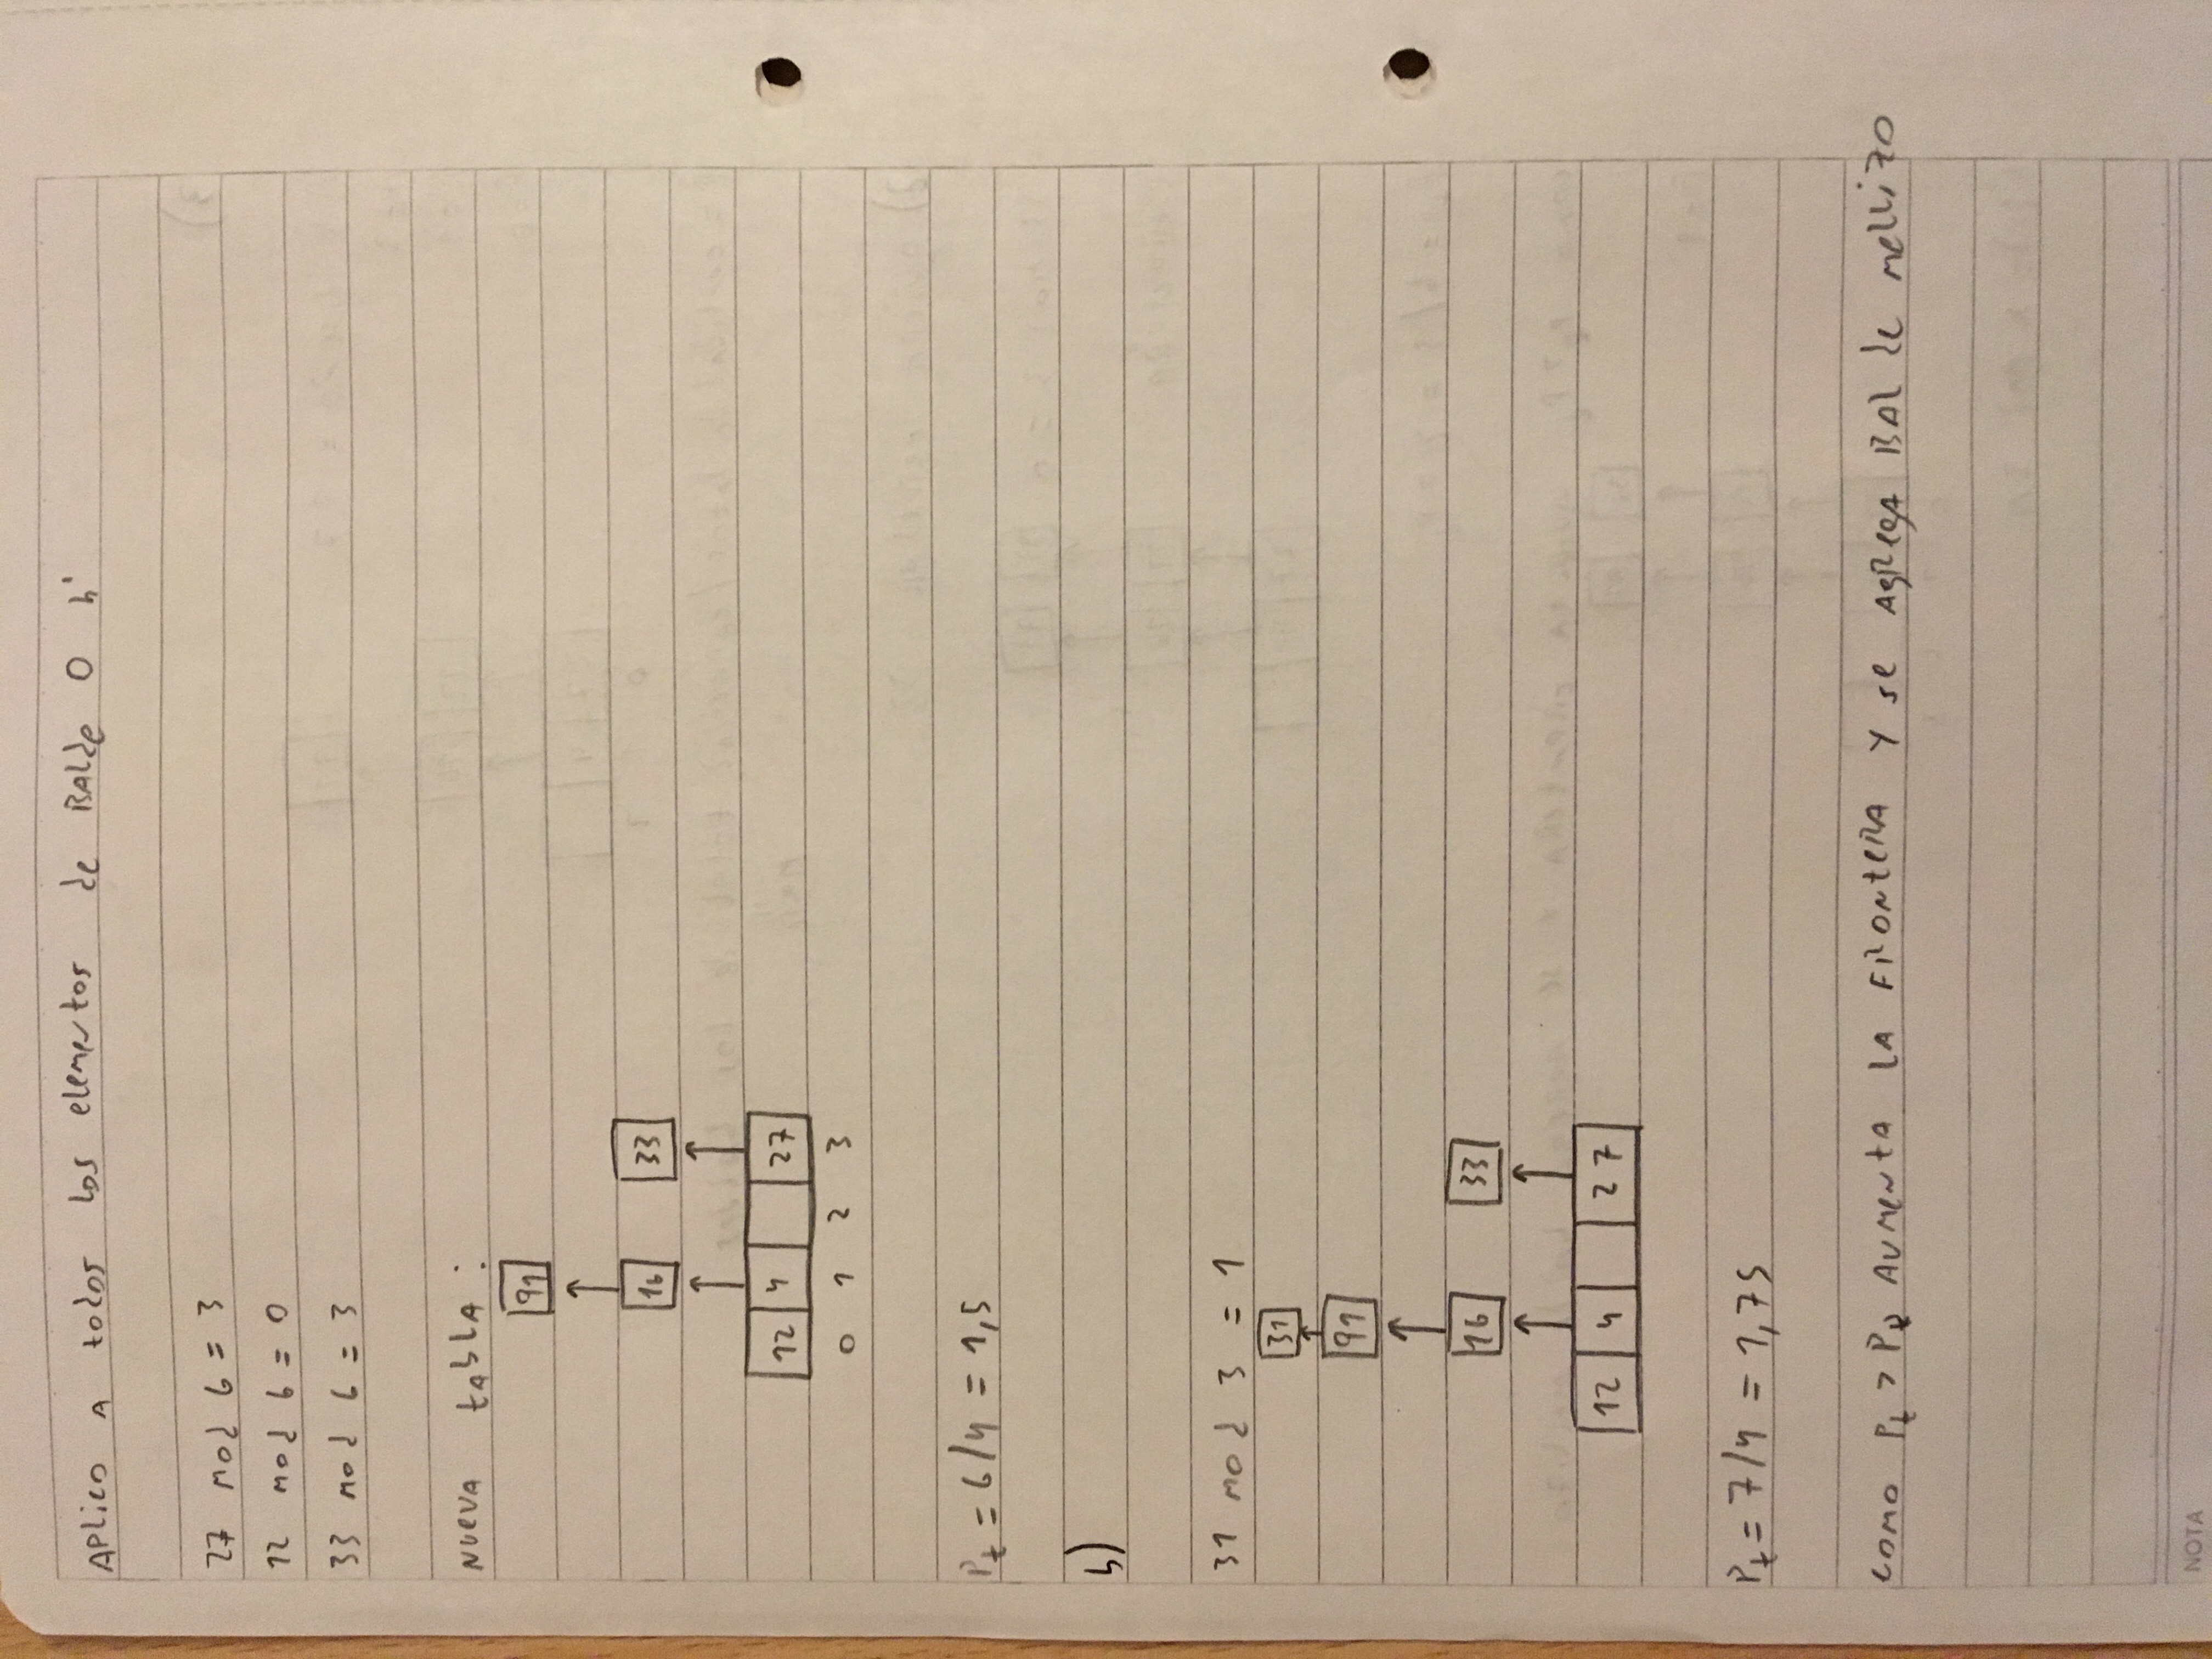 APlico A todos los elementos de BALde 0 h'
27 mod 6 = 3
12 mod 6 = 0
33 mod 6 = 3
NUEVA tAblA :
91
16 33
12 4 27
0 1 2 3
Pt = 6/4 = 1,5
b)
31 mod 3 = 1
31
91
16 33
12 4 27
Pt = 7/4 = 1,75
como Pt > PR AUMENTA LA FRONTERA Y se AgRegA BALde mellizo
NOTA